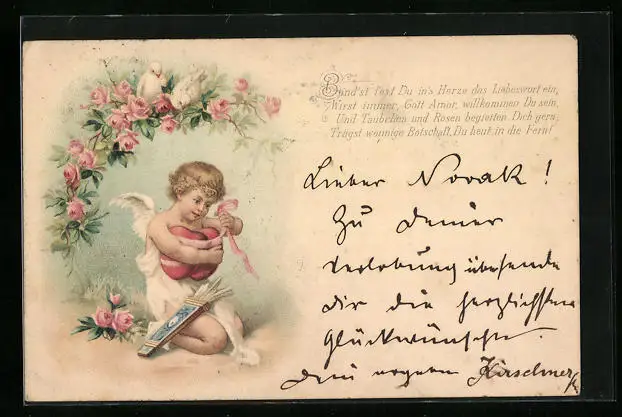 Bind'st fest Du in's Herze das Liebeswort ein,
Wirst immer, Gott Amor, willkommen Du sein,
Und Täubchen und Rosen begleiten Dich gern,
Trägst wonnige Botschaft, Du heut in die Fern!
Lieber Novak!
Zu Deiner
Verlobung übersende
dir die herzlichsten
Glückwünsche.
Dein Kirschner